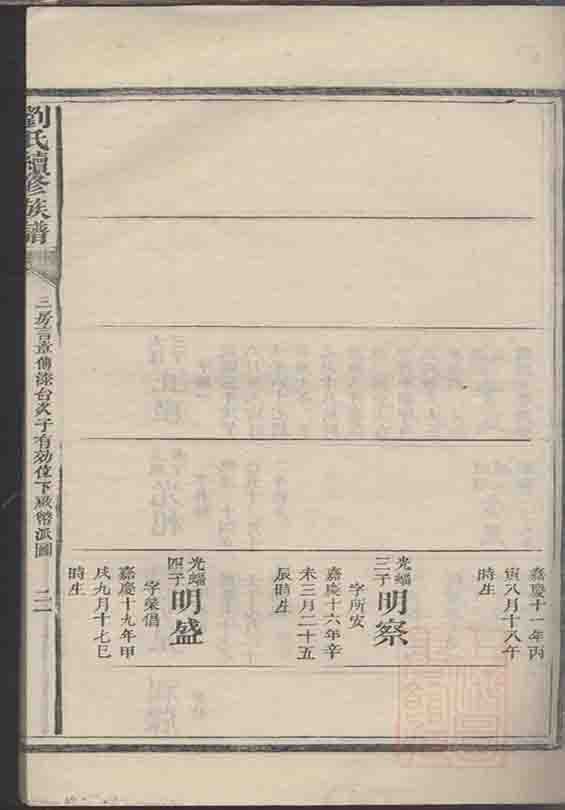 嘉慶十一年丙
寅八月十八午
時生
光蝠
三子
明察
字所安
嘉慶十六年辛
未三月二十五
辰時生
光蝠
四子
明盛
字榮倡
嘉慶十九年甲
戌九月十七巳
時生
劉氏續修族譜
三房言章傳漆台公子有効位下啟幣派圖
二